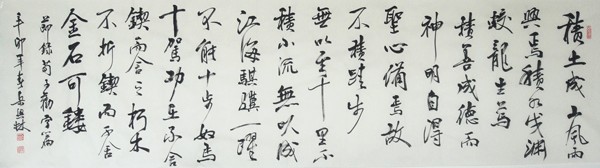 積土成山風雨
興焉積水成渊
蛟龍生焉
積善成德而
神明自得
聖心備焉故
不積跬步
無以至千里不
積小流無以成
江海騏驥一躍
不能十步駑馬
十駕功在不舍
鍥而舍之朽木
不折鍥而不舍
金石可鏤
節錄荀子勸學篇
辛卯年